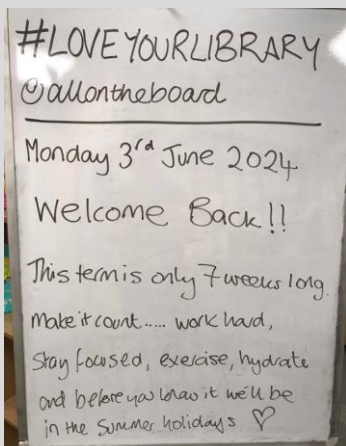 #LOVEYOURLIBRARY
@allontheboard
Monday 3rd June 2024
Welcome Back!!
This term is only 7 weeks long.
Make it count..... work hard,
Stay focused, exercise, hydrate
and before you know it we'll be
in the Summer holidays ♡